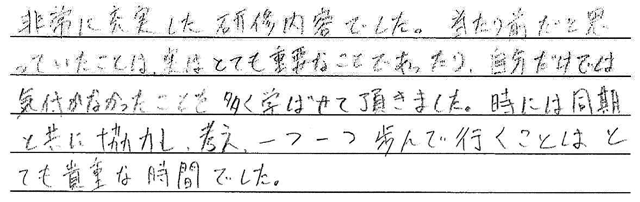 非常に充実した研修内容でした。当たり前だと思
っていたことは、実はとても重要なことであったり、自分だけでは
気付かなかったことを多く学ばせて頂きました。時には同期
と共に協力し、考え、一つ一つ歩んで行くことはと
ても貴重な時間でした。